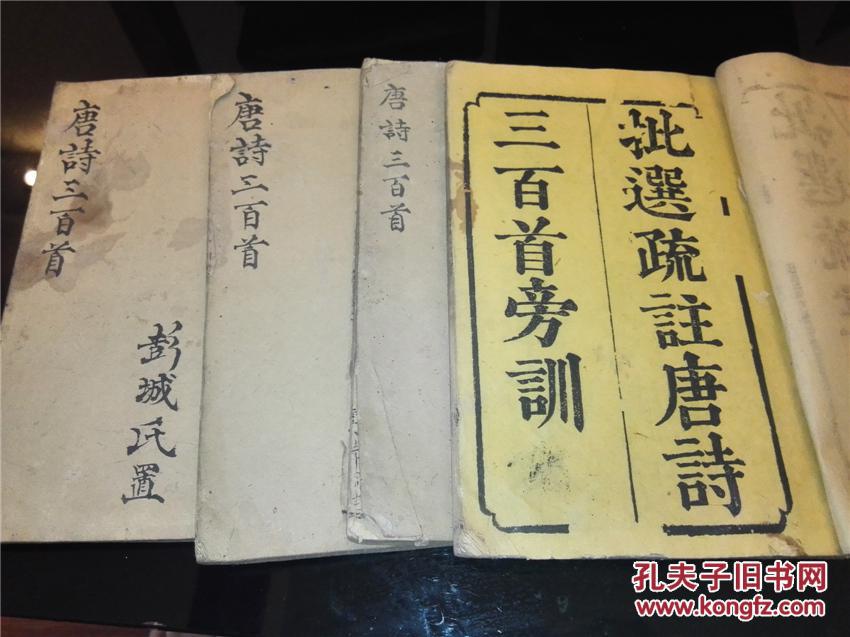 唐詩三百首
彭城氏置
唐詩三百首
唐詩三百首
批選疏註唐詩
三百首旁訓
孔夫子旧书网
www.kongfz.com